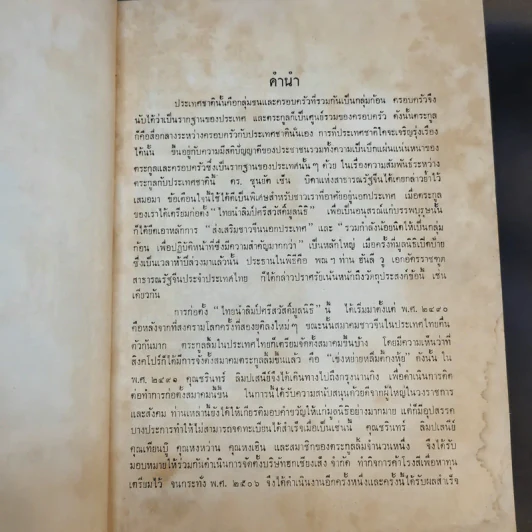 คำนำ
ประเทศชาตินั้นคือกลุ่มชนและครอบครัวที่รวมกันเป็นกลุ่มก้อน ครอบครัวจึง
นับได้ว่าเป็นรากฐานของประเทศ และตระกูลก็เป็นศูนย์รวมของครอบครัว ดังนั้นตระกูล
ก็คือสื่อกลางระหว่างครอบครัวกับประเทศชาตินั่นเอง การที่ประเทศชาติใดจะเจริญรุ่งเรือง
ได้นั้น ขึ้นอยู่กับความมีสติปัญญาดีของประชาชนรวมทั้งความเป็นปึกแผ่นแน่นหนาของ
ตระกูลและครอบครัวซึ่งเป็นรากฐานของประเทศนั้น ๆ ด้วย ในเรื่องความสัมพันธ์ระหว่าง
ตระกูลกับประเทศชาตินี้ ดร. ซุนยัด เซ็น บิดาแห่งสาธารณรัฐจีนได้เคยกล่าวย้ำไว้
เสมอมา ข้อเตือนใจนี้ใช้ได้ดีเป็นพิเศษสำหรับชาวเราที่อาศัยอยู่นอกประเทศ เมื่อตระกูล
ของเราได้เตรียมก่อตั้ง "ไทยนำลิมป์ศรีสวัสดิ์มูลนิธิ" เพื่อเป็นอนุสรณ์แก่บรรพบุรุษนั้น
ก็ได้ยึดเอาหลักการ "ส่งเสริมชาวจีนนอกประเทศ" และ "รวมกำลังน้อยนิดให้เป็นกลุ่ม
ก้อน เพื่อปฏิบัติหน้าที่ซึ่งมีความสำคัญมากกว่า" เป็นหลักใหญ่ เมื่อครั้งที่มูลนิธิเปิดป้าย
ซึ่งเป็นเวลาห้าปีล่วงมาแล้วนั้น ประธานในพิธีคือ พณฯ ท่าน ฮันลี วู เอกอัครราชทูต
สาธารณรัฐจีนประจำประเทศไทย ก็ได้กล่าวปราศรัยเน้นหนักถึงวัตถุประสงค์ข้อนี้ เช่น
เดียวกัน
การก่อตั้ง "ไทยนำลิมป์ศรีสวัสดิ์มูลนิธิ" นี้ ได้เริ่มมาตั้งแต่ พ.ศ. ๒๔๙๐
คือหลังจากที่สงครามโลกครั้งที่สองยุติลงใหม่ ๆ ขณะนั้นสมาคมชาวจีนในประเทศไทยตื่น
ตัวกันมาก ตระกูลลิ้มในประเทศไทยก็เตรียมจัดตั้งสมาคมขึ้นบ้าง โดยมีความเห็นว่าที่
สิงคโปร์ก็ได้มีการจัดตั้งสมาคมตระกูลลิ้มขึ้นแล้ว คือ ดังนั้น ใน
พ.ศ. ๒๔๙๑ คุณชรินทร์ ลิมป์เสนีย์จึงได้เดินทางไปถึงกรุงนานกิง เพื่อดำเนินการติด
ต่อทำการก่อตั้งสมาคมนี้ขึ้น ในการนี้ได้รับความสนับสนุนด้วยดีจากผู้ใหญ่ในวงราชการ
และสังคม ท่านเหล่านี้ยังได้ให้เกียรติมอบคำขวัญให้แก่มูลนิธิอย่างมากมาย แต่ก็มีอุปสรรค
บางประการทำให้ไม่สามารถจดทะเบียนได้สำเร็จเมื่อเป็นเช่นนี้ คุณชรินทร์ ลิมป์เสนีย์
คุณเทียนบู๊ คุณหงหว่าน คุณหงเอิน และสมาชิกของตระกูลลิ้มจำนวนหนึ่ง จึงได้รับ
มอบหมายให้ร่วมกันดำเนินการจัดตั้งบริษัทฮกเชียงเส็ง จำกัด ทำกิจการค้าโรงสีเพื่อหาทุน
เตรียมไว้ จนกระทั่ง พ.ศ. ๒๕๐๖ จึงได้ดำเนินงานอีกครั้งหนึ่งและครั้งนี้ได้รับผลสำเร็จ